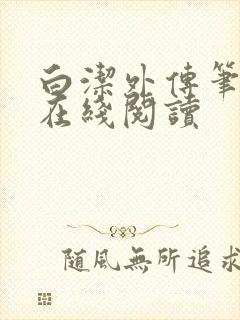 白潔外傳筆
在綫閱讀
隨風無所追求